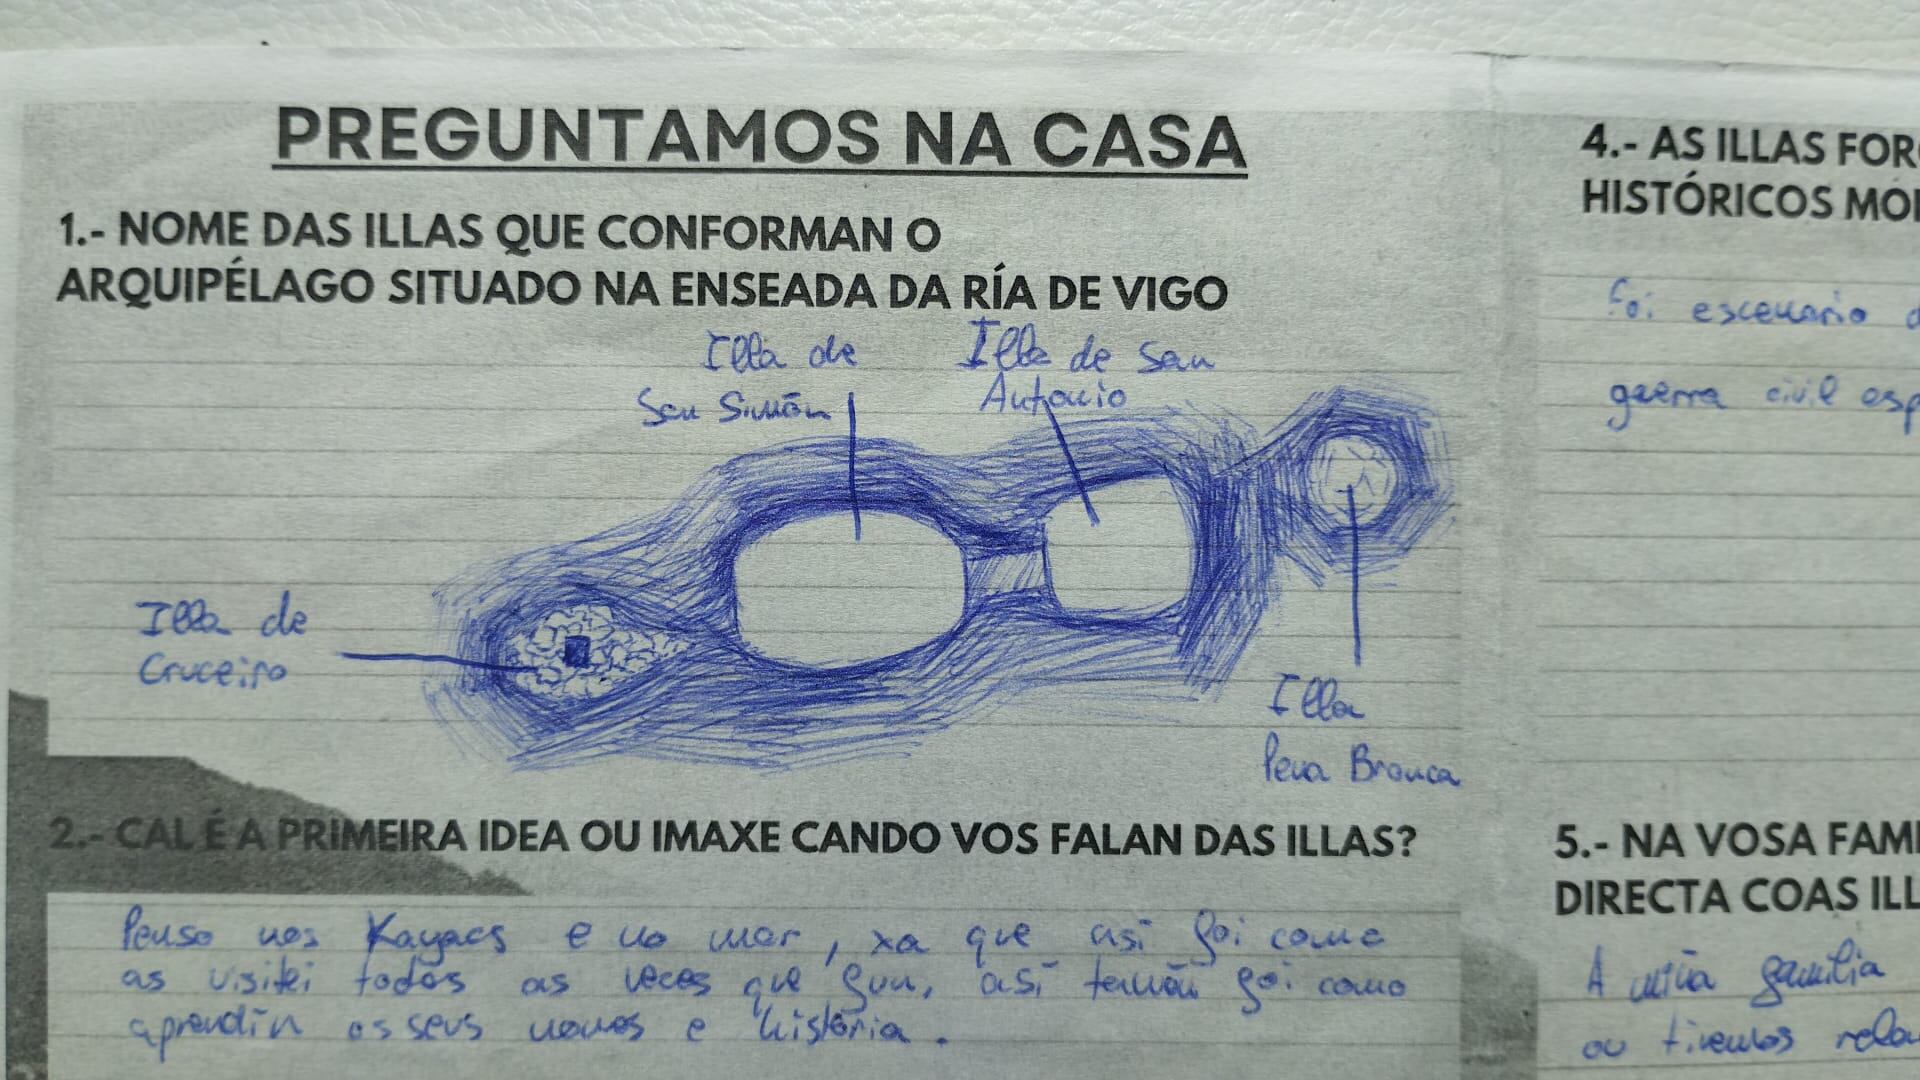 PREGUNTAMOS NA CASA
1.- NOME DAS ILLAS QUE CONFORMAN O
ARQUIPÉLAGO SITUADO NA ENSEADA DA RÍA DE VIGO
Illa de
San Simón
Illa de San
Antonio
Illa de
Cruceiro
Illa
Pena Branca
2.- CAL É A PRIMEIRA IDEA OU IMAXE CANDO VOS FALAN DAS ILLAS?
Penso nos Kayacs e no mar, xa que así foi como
as visitei todas as veces que fun, así tamén foi como
aprendín os seus nomes e historia.
4.- AS ILLAS FOR
HISTÓRICOS MO
foi escenario d
guerra civil esp
5.- NA VOSA FAMI
DIRECTA COAS ILL
A miña familia
ou tivemos rela